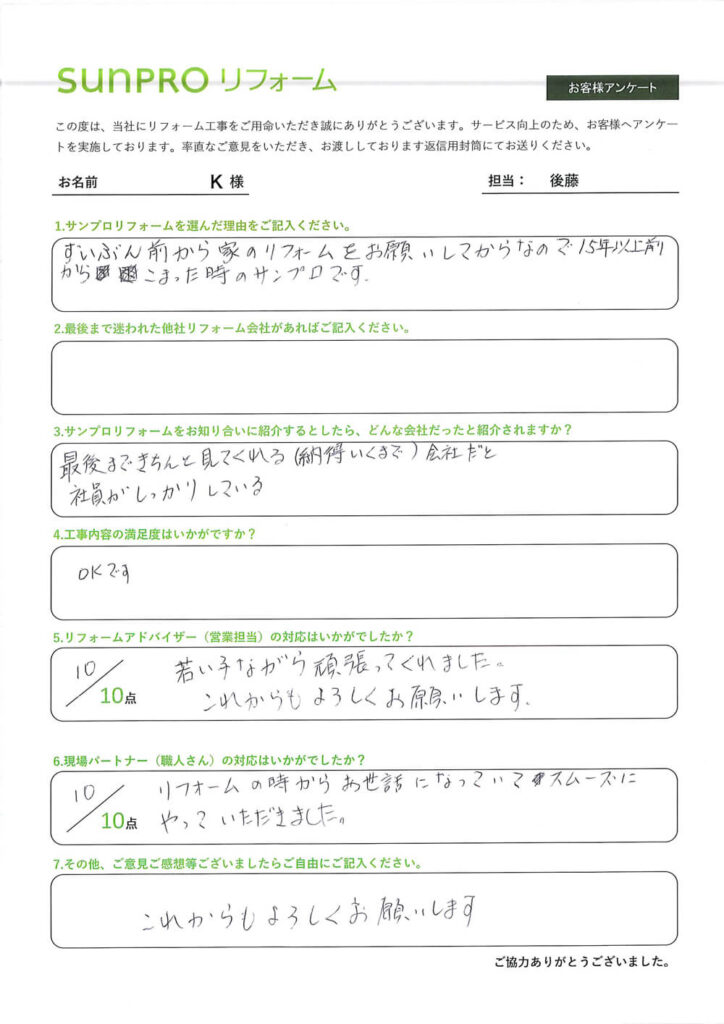 SUNPRO リフォーム
お客様アンケート
この度は、当社にリフォーム工事をご用命いただき誠にありがとうございます。サービス向上のため、お客様へアンケー
トを実施しております。率直なご意見をいただき、お渡ししております返信用封筒にてお送りください。
お名前 K 様 担当： 後藤
1.サンプロリフォームを選んだ理由をご記入ください。
ずいぶん前から家のリフォームをお願いしてからなので15年以上前
から こまった時のサンプロです.
2.最後まで迷われた他社リフォーム会社があればご記入ください。
3.サンプロリフォームをお知り合いに紹介するとしたら、どんな会社だったと紹介されますか？
最後まできちんと見てくれる(納得いくまで)会社だと
社員がしっかりしている
4.工事内容の満足度はいかがですか？
OKです
5.リフォームアドバイザー（営業担当）の対応はいかがでしたか？
10/10点 若い子ながら頑張ってくれました。
これからもよろしくお願いします.
6.現場パートナー（職人さん）の対応はいかがでしたか？
10/10点 リフォームの時からお世話になっていてスムーズに
やっていただきました。
7.その他、ご意見ご感想等ございましたらご自由にご記入ください。
これからもよろしくお願いします
ご協力ありがとうございました。